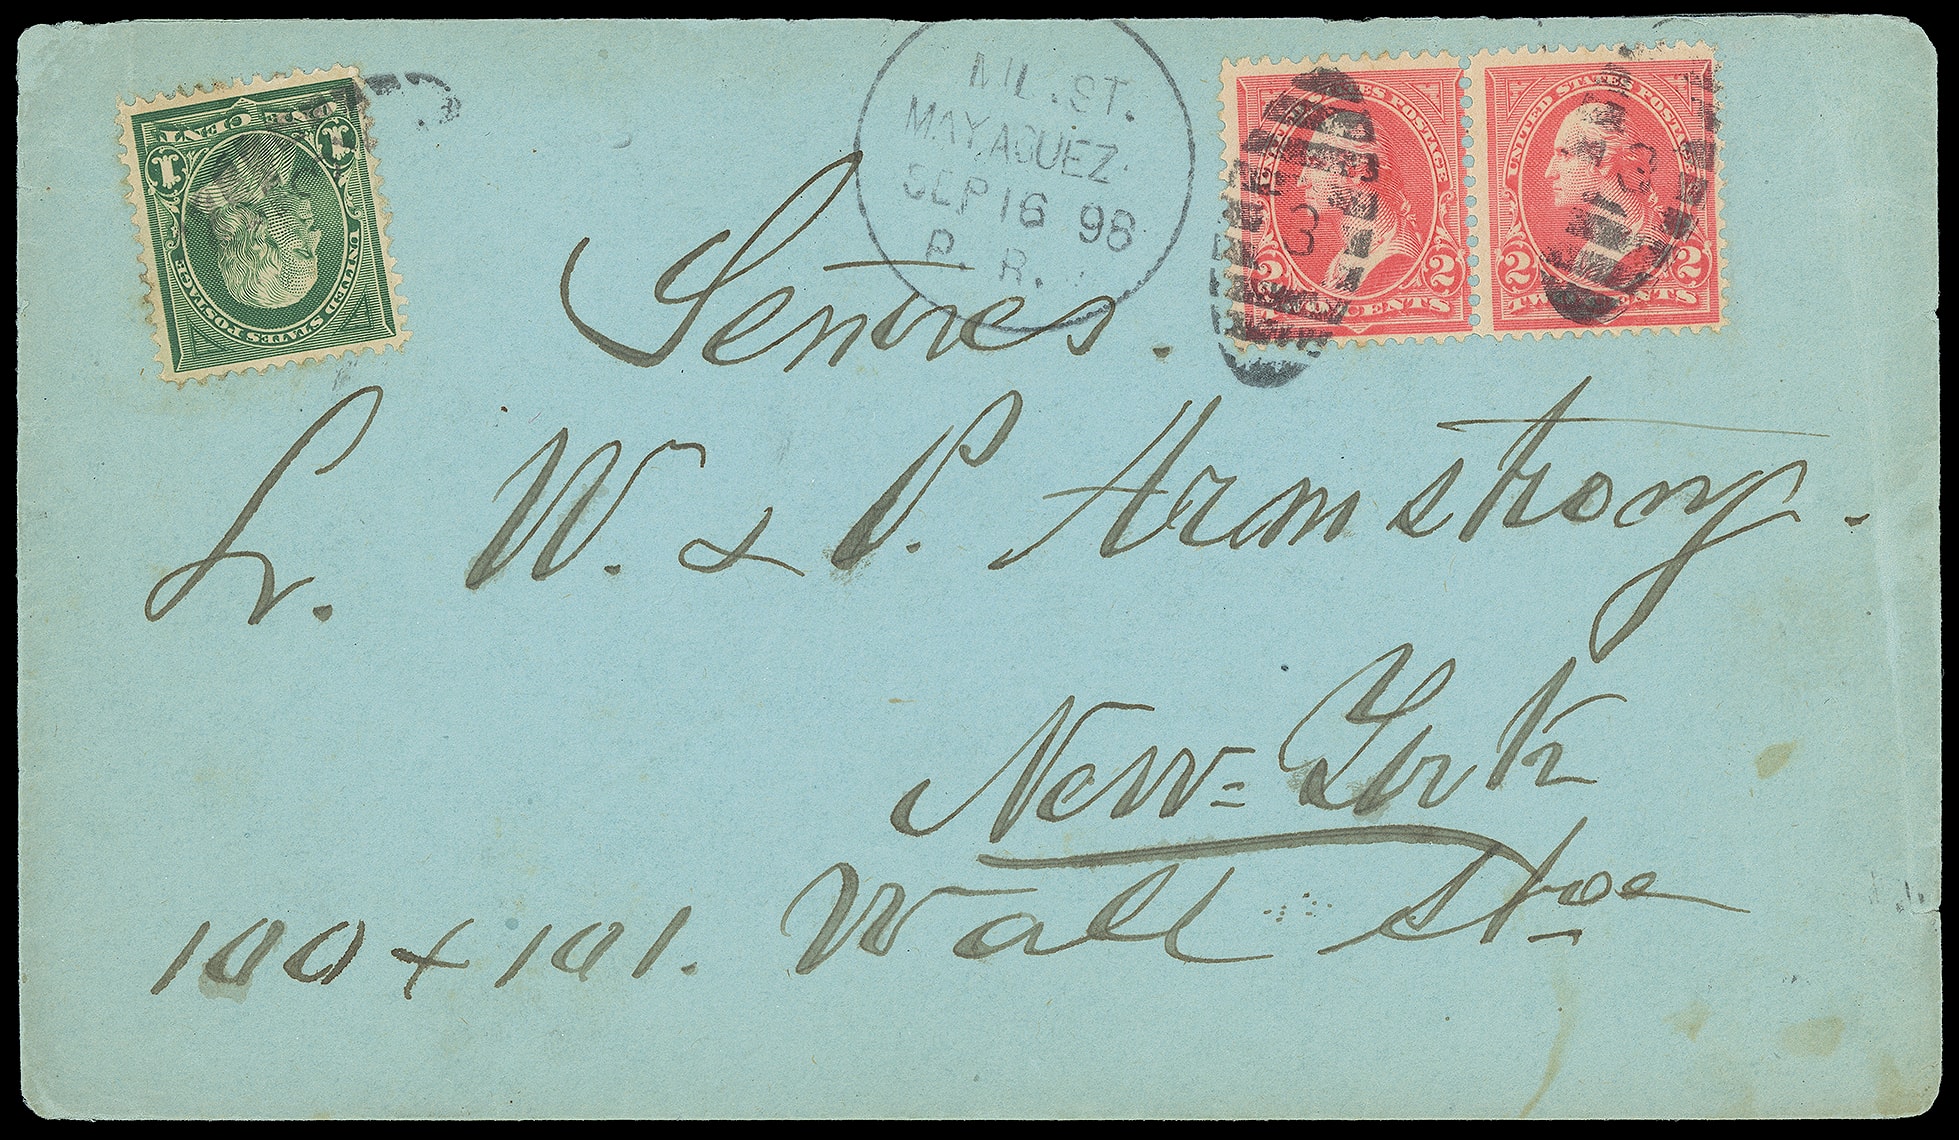 ONE CENT
1 1
UNITED STATES POSTAGE
MIL. ST.
MAYAGUEZ.
SEP 16 98
P. R.
UNITED STATES POSTAGE
3
2 2
TWO CENTS
UNITED STATES POSTAGE
3
2 2
TWO CENTS
Señores.
L. W. & P. Armstrong.
New=York
100 + 101. Wall